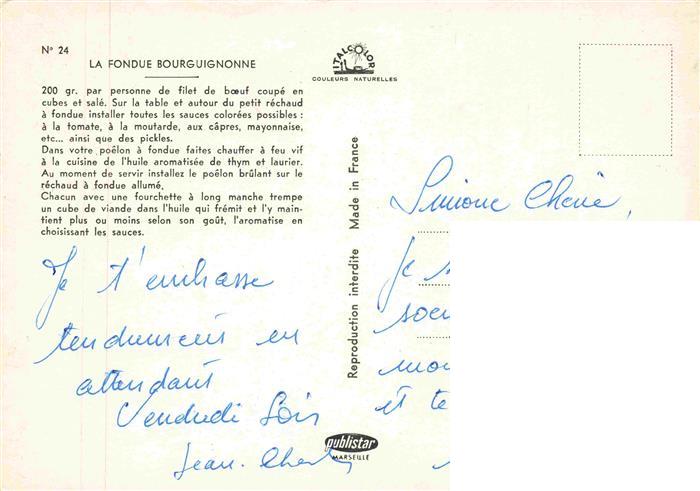 N° 24
LA FONDUE BOURGUIGNONNE
200 gr. par personne de filet de bœuf coupé en
cubes et salé. Sur la table et autour du petit réchaud
à fondue installer toutes les sauces colorées possibles :
à la tomate, à la moutarde, aux câpres, mayonnaise,
etc... ainsi que des pickles.
Dans votre poêlon à fondue faites chauffer à feu vif
à la cuisine de l'huile aromatisée de thym et laurier.
Au moment de servir installez le poêlon brûlant sur le
réchaud à fondue allumé.
Chacun avec une fourchette à long manche trempe
un cube de viande dans l'huile qui frémit et l'y main-
tient plus ou moins selon son goût, l'aromatise en
choisissant les sauces.
Je t'embrasse
tendrement en
attendant
Vendredi Soir
Jean-
ITALCOLOR
COULEURS NATURELLES
Reproduction interdite Made in France
publistar
MARSEILLE
Simone Chérie,
Je
et